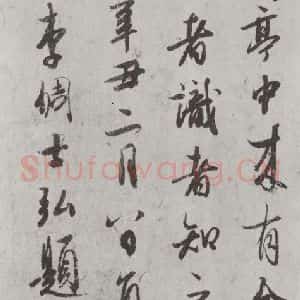 亭中来有
者識者知
辛丑二月八日
李倜士弘題
Shufawang.CN